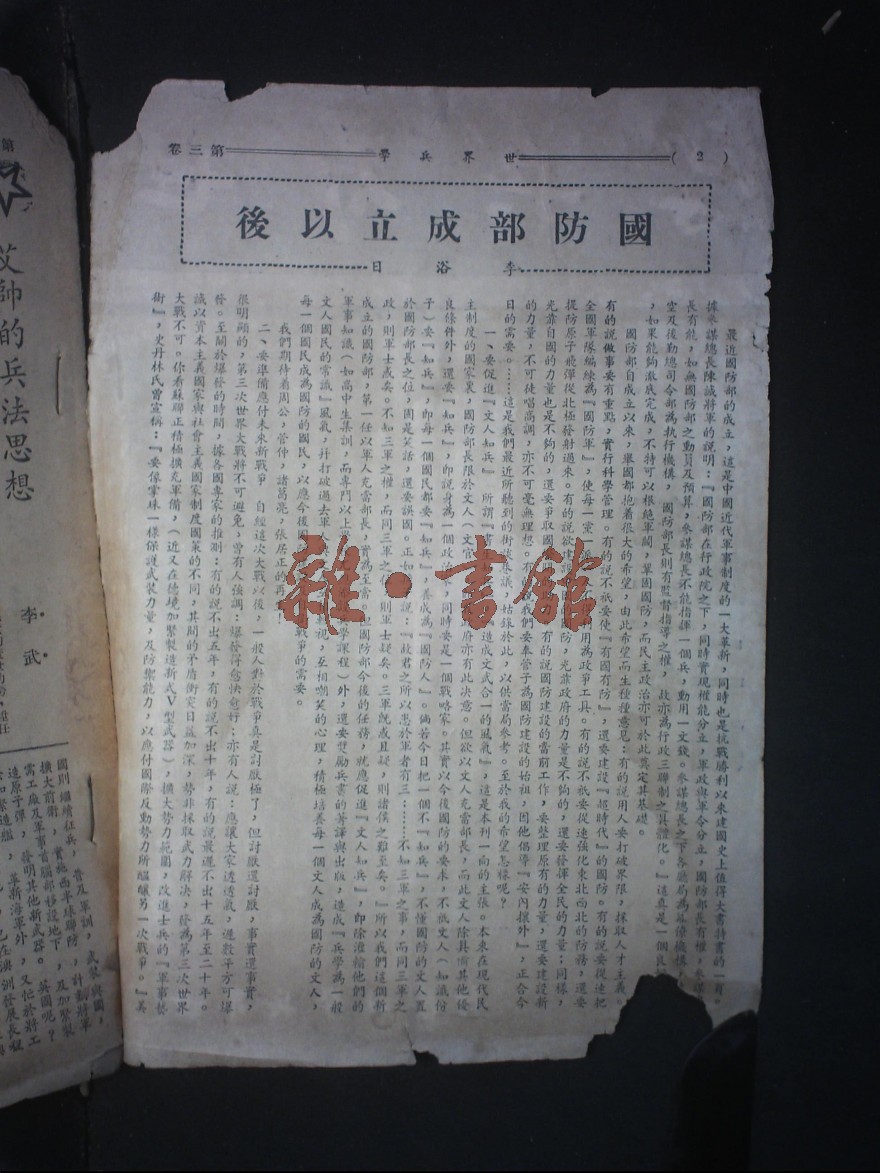 (2)
世界兵學
第三卷
國防部成立以後
李浴日
最近國防部的成立，這是中國近代軍事制度的一大革新，同時也是抗戰勝利以來建國史上值得大書特書的一頁。
據參謀總長陳誠將軍的說明：『國防部在行政院之下，同時實現權能分立，軍政與軍令分立，國防部長有權，參謀
長有能，如無國防部之動員及預算，參謀總長不能指揮一個兵，動用一文錢。參謀總長之下各廳局為幕僚機構，
空及後勤總司令部為執行機構，國防部長則有監督指導之權，故亦為行政三聯制之具體化。』這真是一個良
，如果能夠澈底完成，不特可以根絕軍閥，鞏固國防，而民主政治亦可於此奠定其基礎。
國防部自成立以來，舉國都抱着很大的希望，由此希望而生種種意見：有的說用人要打破界限，採取人才主義。
有的說做事要有重點，實行科學管理。有的說不祗要使『有國有防』，還要建設『超時代』的國防。有的說要從速把
全國軍隊編練為『國防軍』，使每一黨一派
用為政爭工具。有的說不祗要從速強化東北西北的防務，還要
提防原子飛彈從北極發射過來。有的說欲建設
國防，光靠政府的力量是不夠的，還要發揮全民的力量；同樣，
光靠自國的力量也是不夠的，還要爭取國
有的說國防建設的當前工作，要整理原有的力量，還要建設新
的力量，不可徒唱高調，亦不可毫無理想。有
我們要奉管子為國防建設的始祖，因他倡導『安內攘外』，正合今
日的需要。……這是我們最近所聽到的街談巷議，姑錄於此，以供當局參考。至於我的希望怎樣呢？
一、要促進『文人知兵』
造成文武合一的風氣』，這是本刊一向的主張。本來在現代民
主制度的國家裏，國防部長限於文人（文官
府亦有此決意。但欲以文人充當部長，而此文人除具備其他優
良條件外，還要『知兵』，即說身為一個政
同時要是一個戰略家。其實以今後國防的要求，不祇文人（知識份
子）要『知兵』，即每一個國民都要『知兵』，養成為『國防人』。倘若今日把一個不『知兵』，不懂國防的文人置
於國防部長之位，固是笑話，還要誤國。正如
說：『故君之所以患於軍者有三：……不知三軍之事，而同三軍之
政，則軍士惑矣。不知三軍之權，而同三軍之任，則軍士疑矣。三軍既惑且疑，則諸侯之難至矣。』所以我們這個新
成立的國防部，第一任以軍人充當部長，實為至當。但國防部今後的任務，就應促進『文人知兵』，即除灌輸他們的
軍事知識（如高中生集訓，而專門以上
兵學課程）外，還要獎勵兵書的著譯與出版，造成『兵學為一般
文人國民的常識』風氣，幷打破過去軍人
視，互相嘲笑的心理，積極培養每一個文人成為國防的文人，
每一個國民成為國防的國民，以應今後國
戰爭的需要。
我們期待着周公，管仲，諸葛亮，張居正的再
二、要準備應付未來新戰爭　自經這次大戰以後，一般人對於戰爭真是討厭極了，但討厭還討厭，事實還事實，
很明顯的，第三次世界大戰將不可避免，曾有人強調：爆發得愈快愈好；亦有人說：應讓大家透透氣，遲數年方可爆
發。至關於爆發的時間，據各國專家的推測：有的說不出五年，有的說不出十年，有的說最遲不出十五年至二十年。
誠以資本主義國家與社會主義國家制度國策的不同，其間的矛盾衝突日益加深，勢非採取武力解決，發為第三次世界
大戰不可。你看蘇聯正積極擴充軍備，（近又在德境加緊製造新式V型武器），擴大勢力範圍，改進士兵的『軍事藝
術』，史丹林氏曾宣稱：『要像掌珠一樣保護武裝力量，及防禦能力，以應付國際反動勢力所醞釀另一次戰爭。』美
第
艾帥的兵法思想
李武
國則繼續征兵，普及軍訓，武裝與國，
擴大前衛，實施西半球聯防，計劃將軍
需工廠及軍事首腦部移設地下，及加緊製
造原子彈，發明其他新武器。英國呢？
革新海軍外，又忙於將工
雜·書館